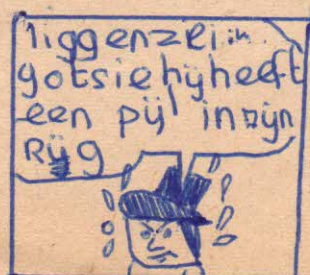 liggenzei in
gotsie hij heeft
een pijl in zijn
Rijg